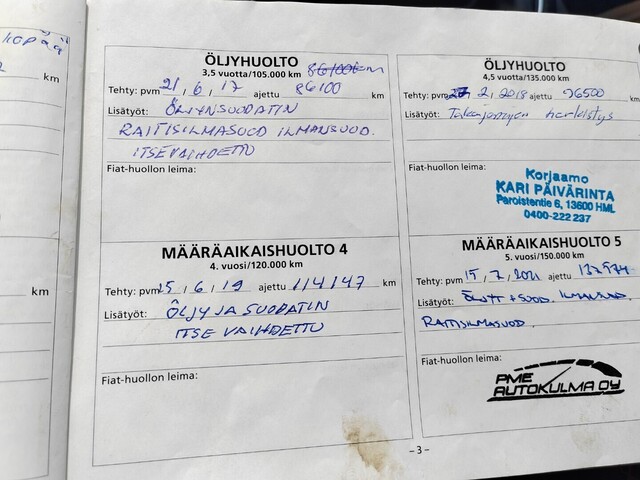 km
km
ÖLJYHUOLTO
3,5 vuotta/105.000 km
Tehty: pvm 21, 6, 17 ajettu 86100 km
Lisätyöt: ÖLJYNSUODATIN
RAITISILMASUOD ILMANSUOD.
ITSE VAIHDETTU
Fiat-huollon leima:
MÄÄRÄAIKAISHUOLTO 4
4. vuosi/120.000 km
Tehty: pvm 15, 6, 19 ajettu 114147 km
Lisätyöt: ÖLJY JA SUODATIN
ITSE VAIHDETTU
Fiat-huollon leima:
ÖLJYHUOLTO
4,5 vuotta/135.000 km
Tehty: pvm 2. 2018 ajettu 96500
Lisätyöt:
Fiat-huollon leima:
Korjaamo
KARI PÄIVÄRINTA
Paroistentie 6, 13600 HML
0400-222 237
MÄÄRÄAIKAISHUOLTO 5
5. vuosi/150.000 km
Tehty: pvm 15, 7, 2021 ajettu
Lisätyöt: ÖLJYT + SUOD. ILMANSUOD.
RAITISILMASUOD.
Fiat-huollon leima:
PME
AUTOKULMA OY
- 3 -